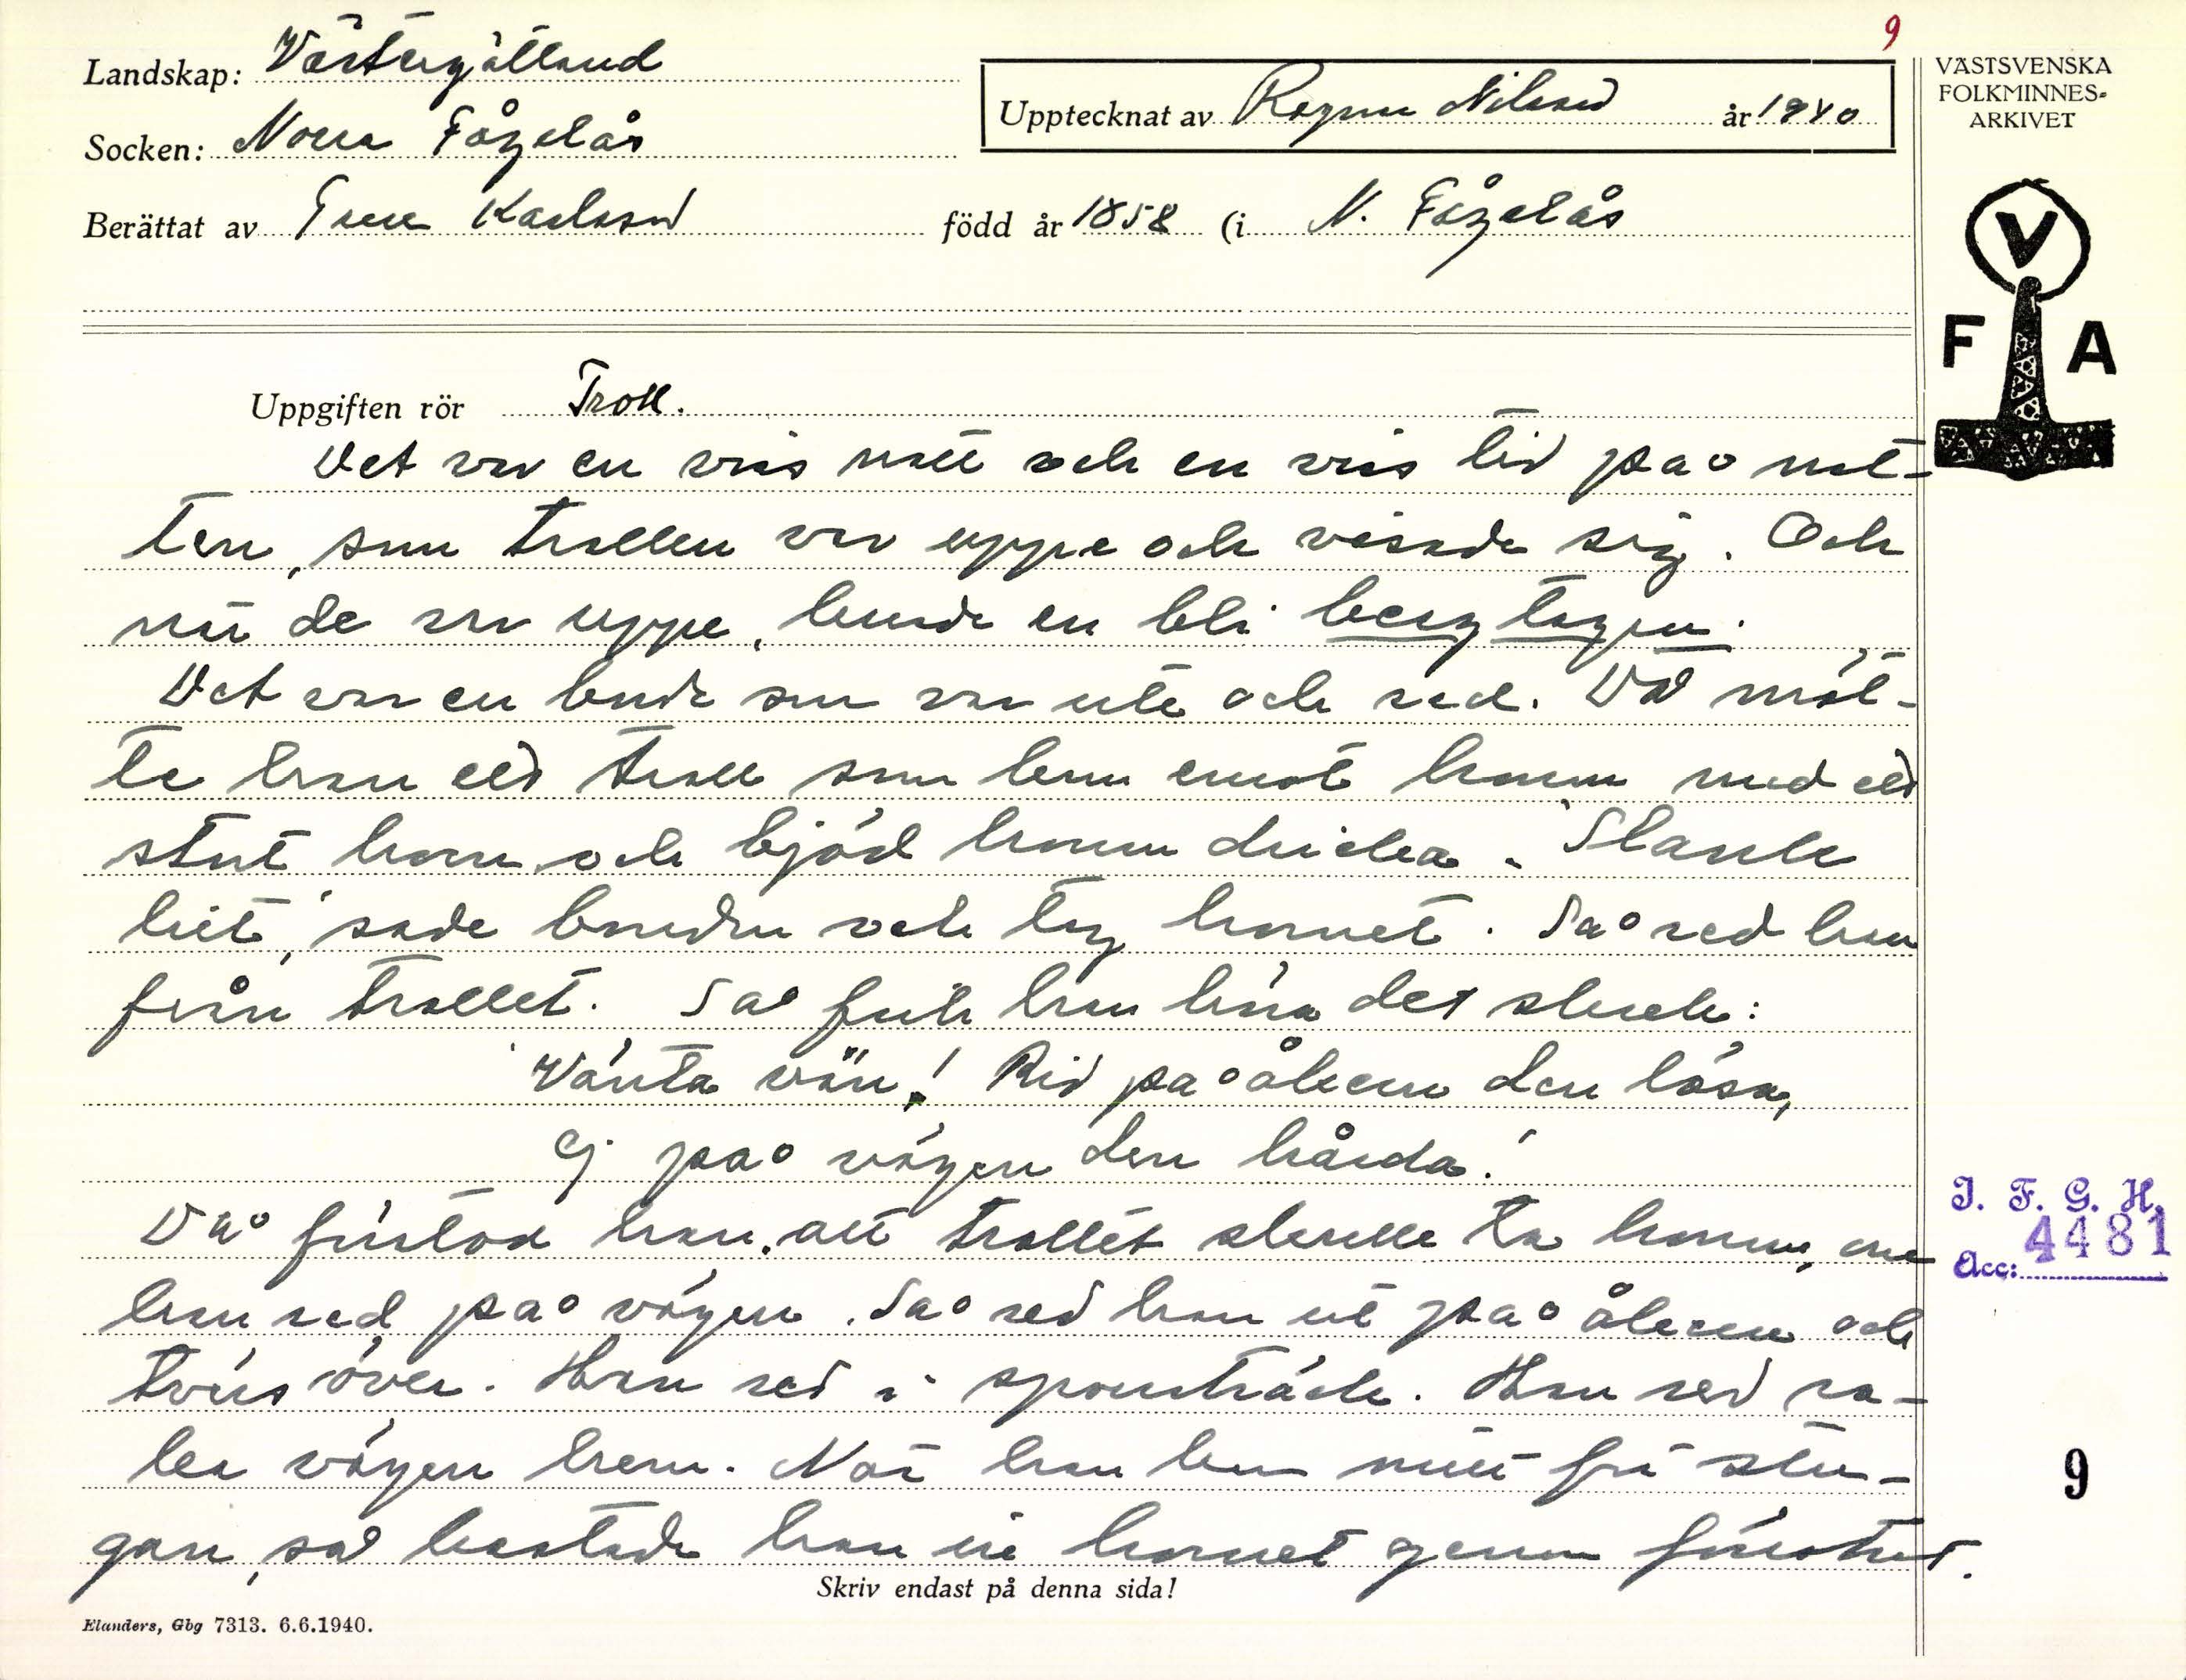 9
Landskap: Västergötland
Socken: Norra Fågelås
Upptecknat av Ragnar Nilsson år 1940
Berättat av Karlsson född år 1858 (i N. Fågelås
VÄSTSVENSKA
FOLKMINNES-
ARKIVET
V
F A
Uppgiften rör Troll.
Det var en viss natt och en viss tid på nat-
ten, som trollen var uppe och visade sig. Och
när de var uppe, kunde en bli bergtagen.
Det var en bonde som var ute och red. Då möt-
te han ett troll som kom emot honom med ett
stort horn och bjöd honom dricka. "Slank
hit", sade bonden och tog hornet. Så red han
från trollet. Så fick han höra det skrek:
"Vänta vän! Rid på åkern den lösa,
Ej på vägen den hårda."
Då förstod han, att trollet skulle ta honom, om
han red på vägen. Så red han ut på åkern och
tvärs över. Han red i sporrsträck. Han red ra-
ka vägen hem. När han kom mitt för stu-
gan, så kastade han in hornet genom fönstret.
J. F. G. H.
Acc: 4481
9
Skriv endast på denna sida!
Elanders, Gbg 7313. 6.6.1940.